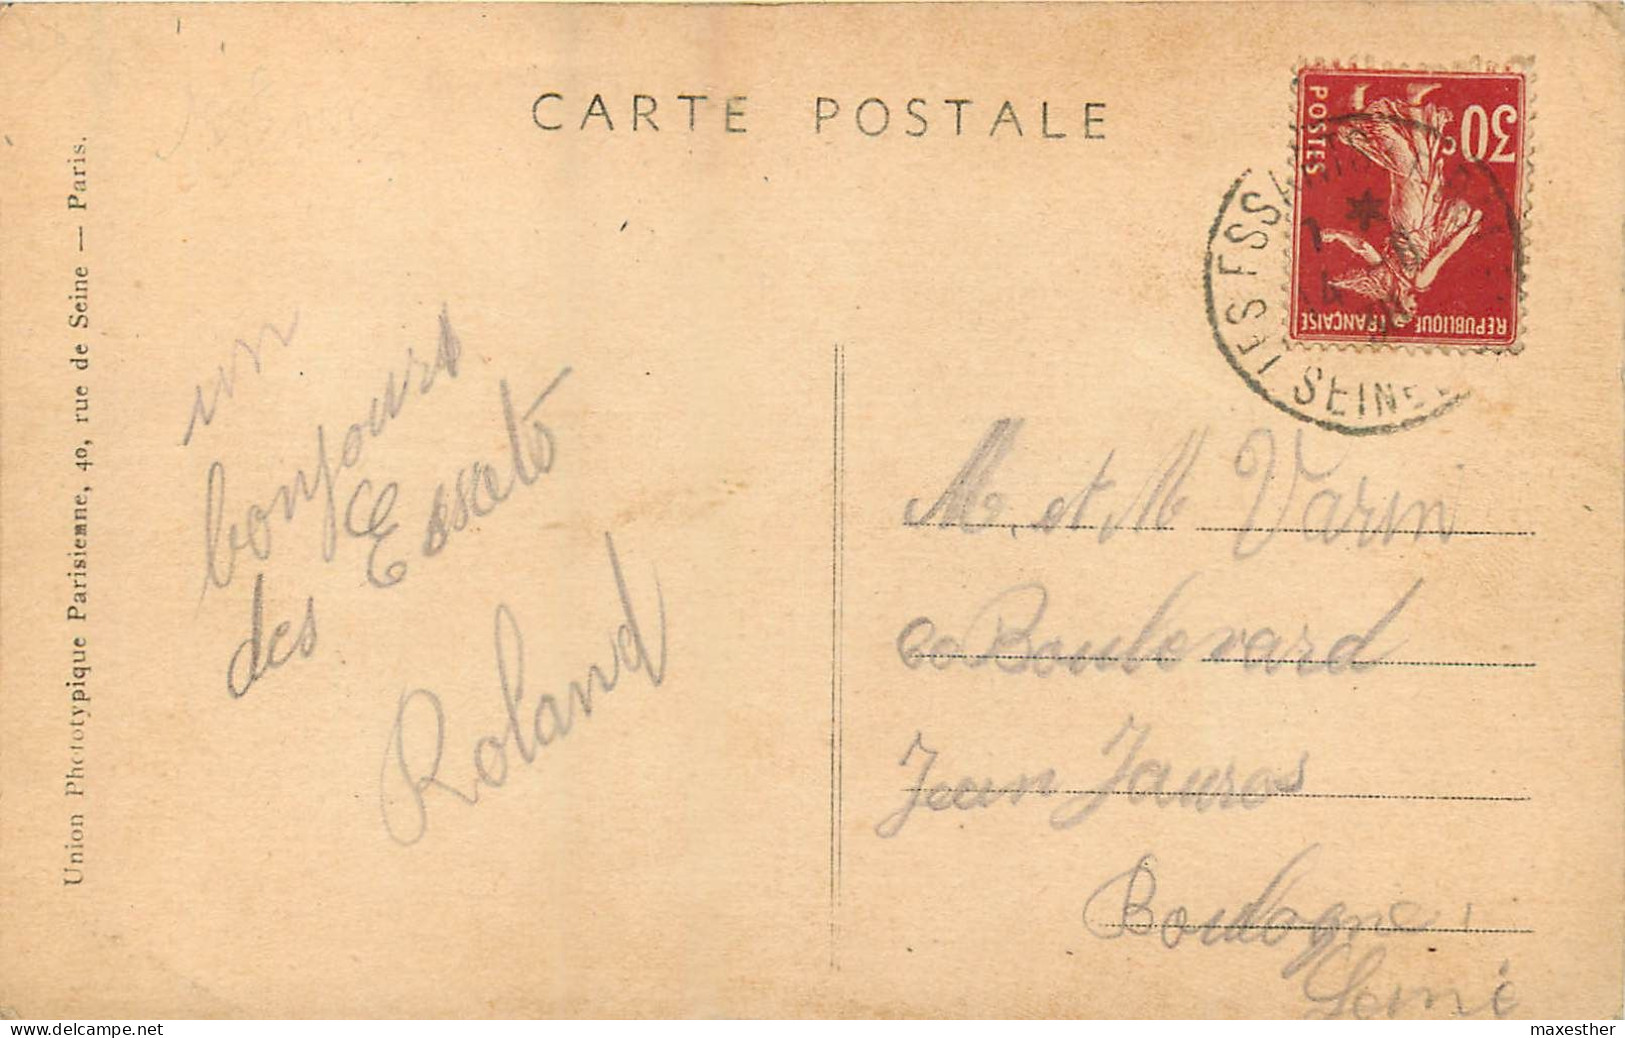 CARTE POSTALE
Union Phototypique Parisienne, 40, rue de Seine — Paris.
30c
POSTES
REPUBLIQUE FRANÇAISE
LES ESSARTS
SEINE
un
bonjours
des Essarts
Roland
M. et M Varin
60 Boulevard
Jean Jaures
Boulogne
Seine
delcampe.net
maxesther